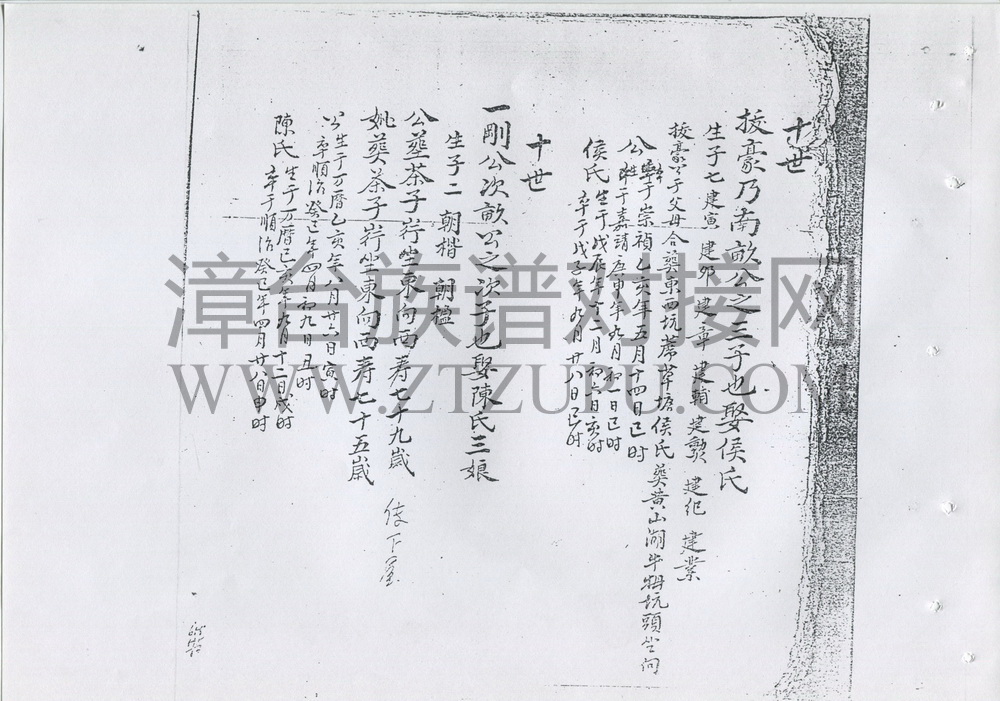 十世
捘豪乃南畝公之三子也娶侯氏
生子七 建寅 建邦 建章 建輔 建勲 建纪 建業
捘豪公于父母合葵東四坑蓆草塘侯氏葵黄山湖牛牳坑頭坐向
公 卒于崇禎乙亥年五月十四日巳时
姓于嘉靖庚申年九月初一日巳时
侯氏 生于戊辰年十一月初六日亥时
卒于戊子年九月廿八日巳时
十世
一剛公次畝公之次子也娶陳氏三娘
生子二 朝楷 朝楹
公葬茶子岃坐東向西寿七十九歲
妣葵茶子岃坐東向西寿七十五歲
公生于万曆乙亥年八月廿六日寅时
卒順治癸巳年四月初九日丑时
陳氏 生于万曆己亥年九月十二日戌时
卒于順治癸巳年四月廿八日申时
傳下屋
漳台族谱对接网
WWW.ZTZUPU.COM